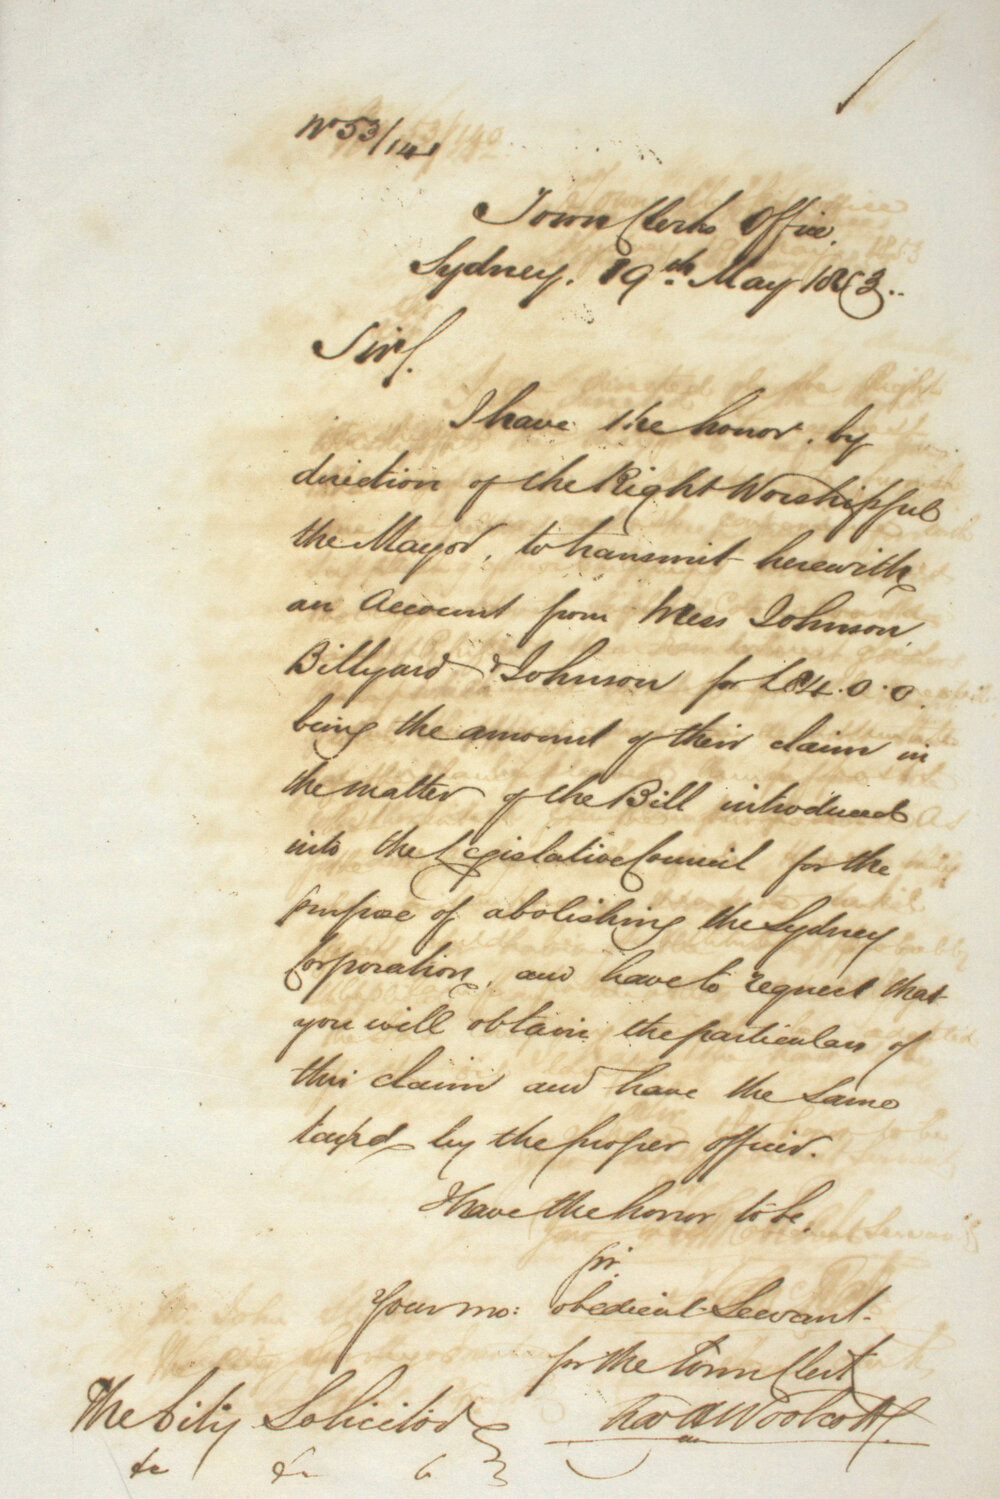 No 53/141
Town Clerks Office,
Sydney. 19th May 1853.
Sir,
I have the honor, by
direction of the Right Worshipful
the Mayor, to transmit herewith
an Account from Mess Johnson
Billyard & Johnson for £84.0.0.
being the amount of their claim in
the matter of the Bill introduced
into the Legislative Council for the
purpose of abolishing the Sydney
Corporation, and have to request that
you will obtain the particulars of
this claim and have the same
taxed by the proper officer.
I have the honor to be,
Sir,
Your mo: obedient Servant.
for the Town Clerk
Woolcott
The City Solicitor
&c &c